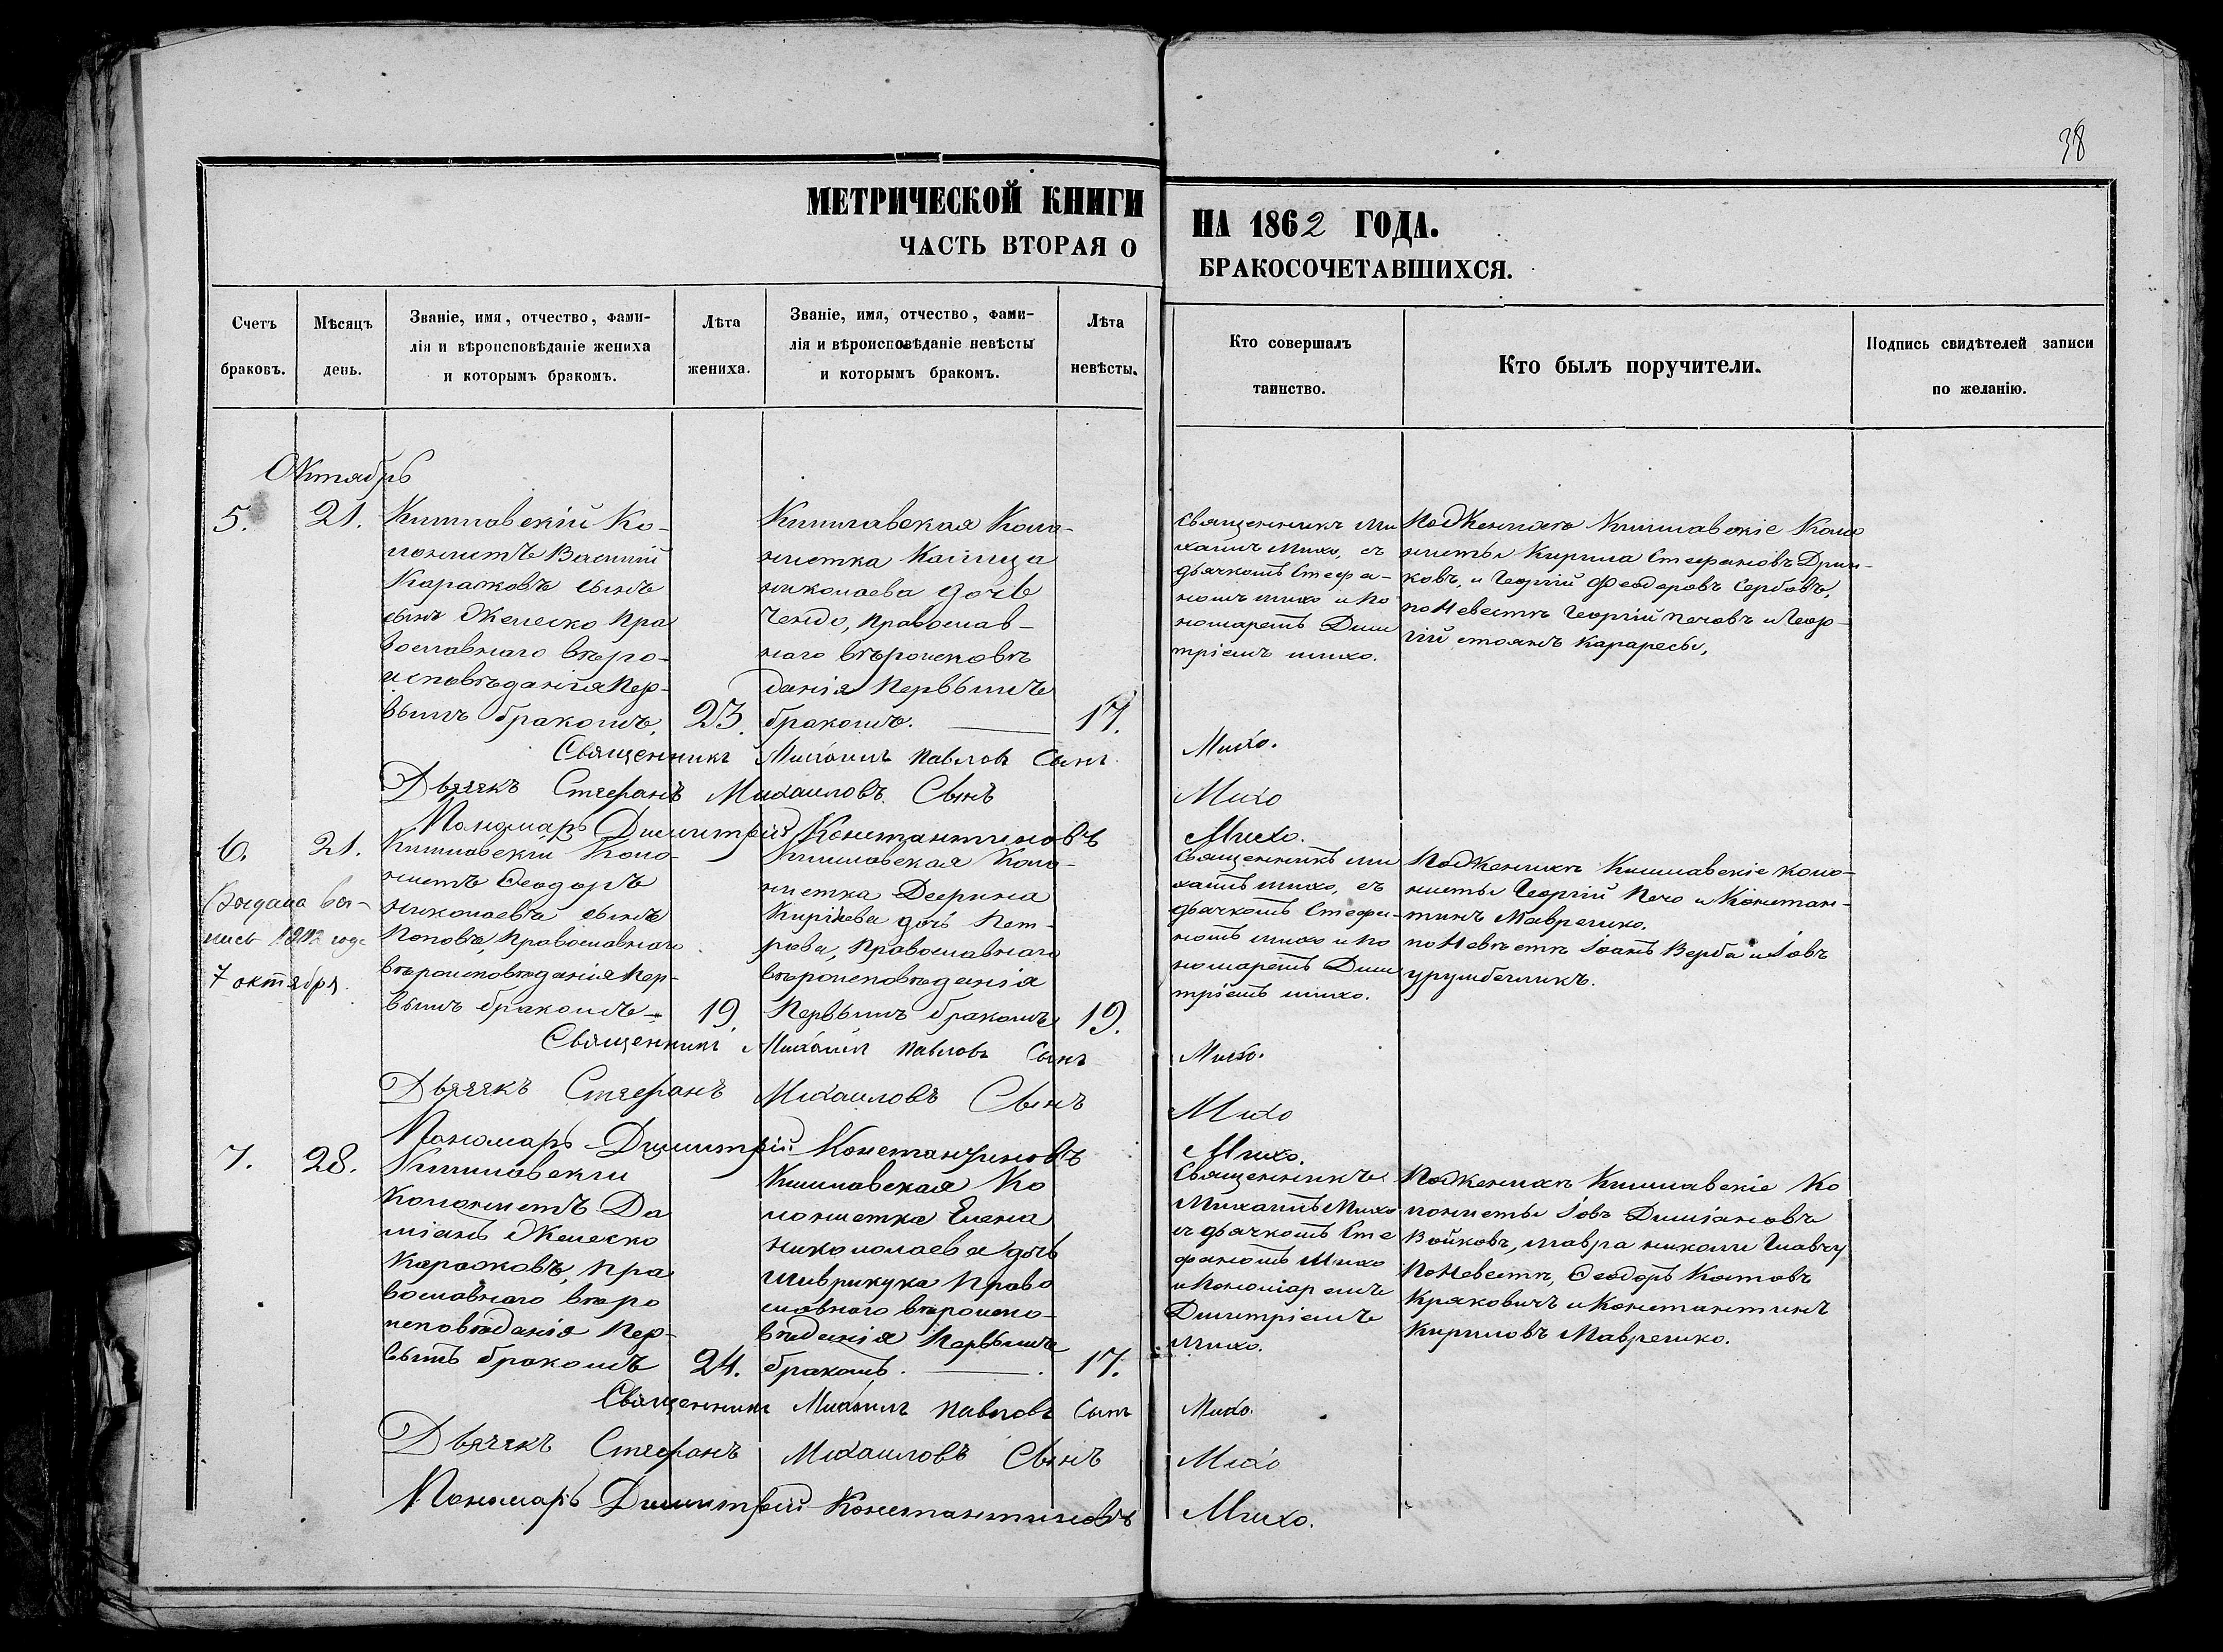 38
МЕТРИЧЕСКОЙ КНИГИ
НА 1862 ГОДА.
ЧАСТЬ ВТОРАЯ О
БРАКОСОЧЕТАВШИХСЯ.
Счетъ
браковъ.
Мѣсяцъ
день.
Званіе, имя, отчество, фами-
лія и вѣроисповѣданіе жениха
и которымъ бракомъ.
Лѣта
жениха.
Званіе, имя, отчество, фами-
лія и вѣроисповѣданіе невѣсты
и которымъ бракомъ.
Лѣта
невѣсты.
Кто совершалъ
таинство.
Кто былъ поручители.
Подпись свидѣтелей записи
по желанію.
Октябрь
5.
21.
Кишлавскій Ко-
лонистъ Василий
Каражовъ сынъ
сынъ Желеско Пра
вославнаго вѣро-
исповѣданія Пер-
вымъ бракомъ.
23.
Кишлавская Коло-
нистка
николаева дочь
Чендо, Православ-
наго вѣроисповѣ
данія Первымъ
бракомъ.
17.
Священникъ Ми
хаилъ Михо, съ
дьячкомъ Стефа-
номъ михо и По
номаремъ Дими
тріемъ михо.
Кишлавскіе Коло
нисты Кирила Стефановъ Дрин-
ковъ, и Георгій Феодоровъ Сербовъ,
по Невестъ Георгій печовъ и Геор-
гій стоянъ Караресы,
Священникъ Михаилъ Павловъ Сынъ
Михо.
Дьячекъ Стефанъ Михаиловъ Сынъ
Михо
Пономарь Димитрій Константиновъ
Михо.
6.
21.
Выдана вы-
пись 1912 года
7 октября.
Кишлавскій Коло-
нистъ Феодоръ
Николаевъ сынъ
Поповъ, Православнаго
вѣроисповѣданія Пер-
вымъ бракомъ
19.
Кишлавская Коло-
нистка
дочь Пет-
рова, Православнаго
вѣроисповѣданія
Первымъ бракомъ
19.
Священникъ Ми
хаилъ михо, съ
дьячкомъ Стефа-
номъ михо и По
номаремъ Дими
тріемъ михо.
Кишлавскіе коло-
нисты Георгій Печо и Констан-
тинъ Маврешко.
по Невѣстѣ Іоанъ Верба и Іовъ
урумбегликъ.
Священникъ Михаилъ Павловъ Сынъ
Михо.
Дьячекъ Стефанъ Михаиловъ Сынъ
Михо
Пономарь Димитрій Константиновъ
Михо.
7.
28.
Кишлавскій
Колонистъ Да
міанъ Желеско
Каражовъ, Пра
вославнаго вѣро
исповѣданія Пер-
вымъ бракомъ
24.
Кишлавская Ко
лонистка Елена
николаева дочь
Право
славнаго вѣроиспо-
вѣданія Первымъ
бракомъ.
17.
Священникъ
Михаилъ Михо
съ дьячкомъ Сте
фаномъ Михо
и Пономаремъ
Димитріемъ
михо.
Кишлавскіе Ко
лонисты Іовъ Диміановъ
Войковъ, мавра николи
по Невестъ, Феодоръ Костовъ
Краковичъ и Константинъ
Кириловъ Маврешко.
Священникъ Михаилъ Павловъ Сынъ
Михо.
Дьячекъ Стефанъ Михаиловъ Сынъ
Михо
Пономарь Димитрій Константиновъ
Михо.